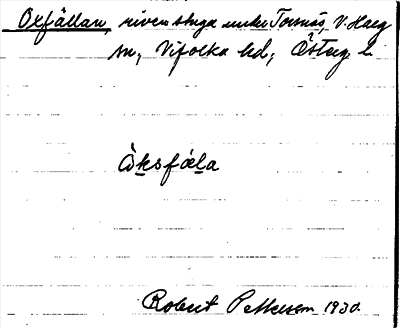 Oxfällan, riven stuga under Tornås, V. Harg
sn, Vifolka hd, Österg. l.
òksfæla
Robert Pettersson 1930.